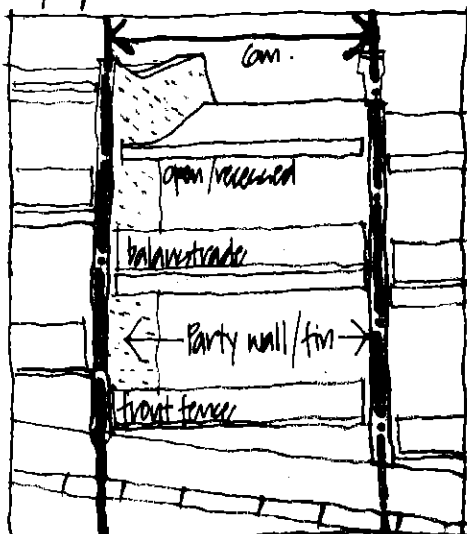 6m.
open/recessed
balanstrade
Party wall/fin
front fence